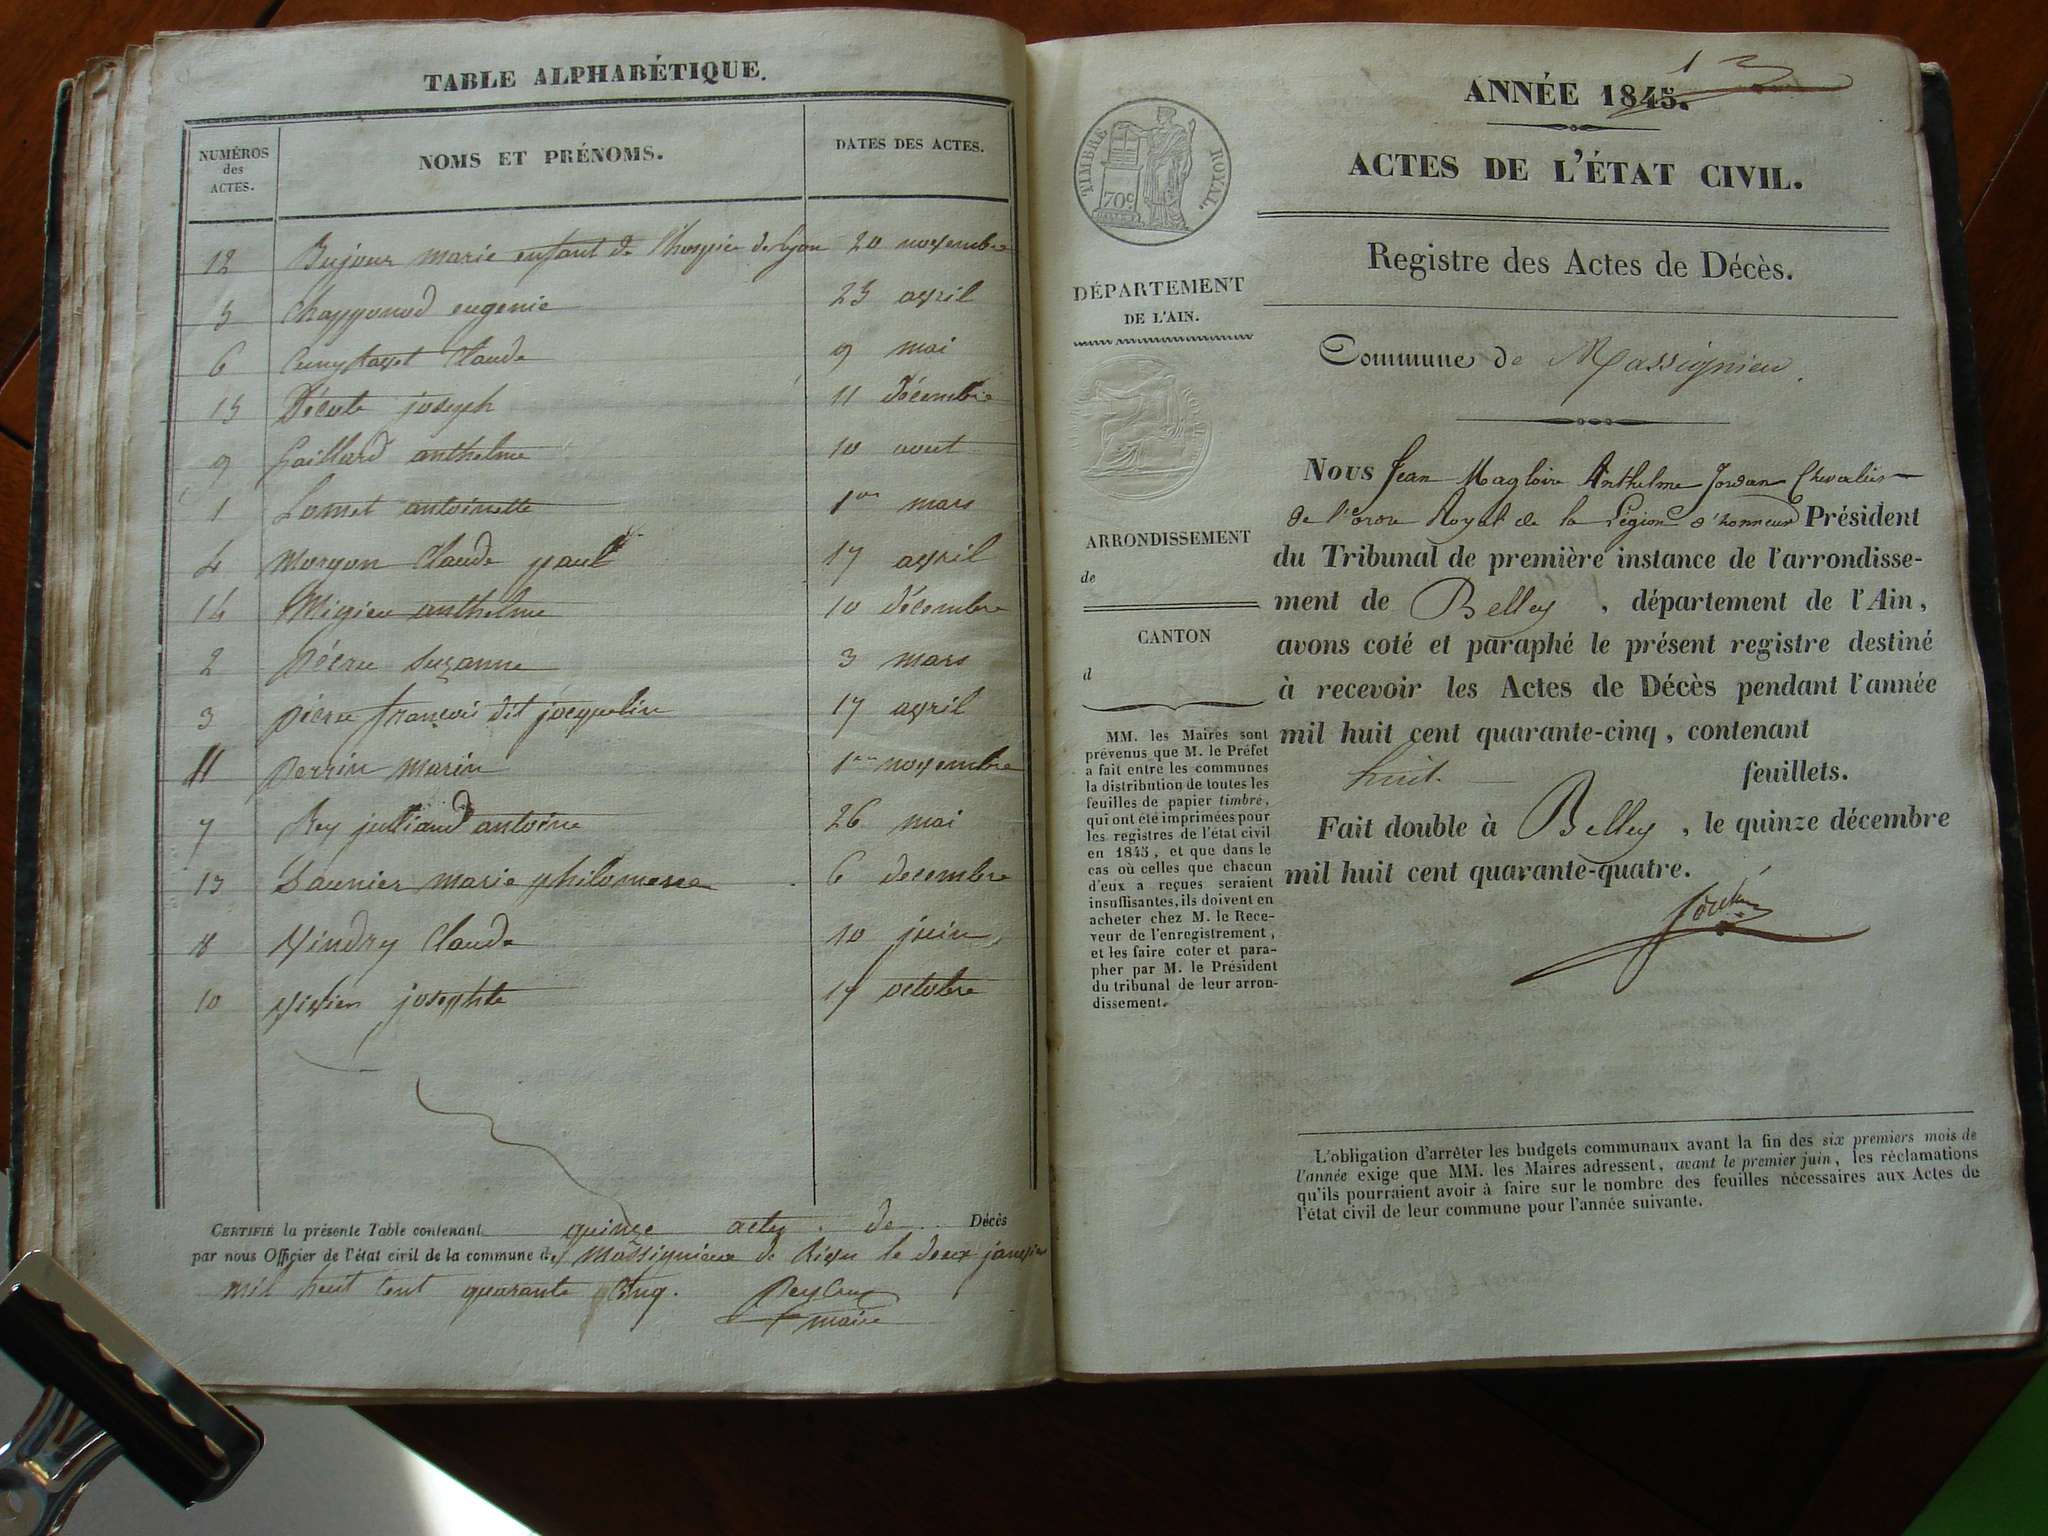 TABLE ALPHABÉTIQUE.
NUMÉROS
des
ACTES.
NOMS ET PRÉNOMS.
DATES DES ACTES.
12 Bujour marie enfant de l'hospice de lyon 20 novembre
5 Chapponod eugenie 23 avril
6 Claude 9 mai
15 Décote joseph 11 décembre
9 Gaillard anthelme 10 aout
1 Lomet antoinette 1er mars
4 Morgon Claude paul 17 avril
14 Migieu anthelme 10 décembre
2 Pécru Suzanne 3 mars
3 pécru françois dit jacquelin 17 avril
11 perrin marin 1er novembre
7 Rey julliand antoine 26 mai
13 Saunier marie philomène 6 decembre
8 Vindry Claude 10 juin
10 Vivien josephte 14 octobre
CERTIFIÉ la présente Table contenant quinze actes de Décès
par nous Officier de l'état civil de la commune de Massignieu de Rives le deux janvier
mil huit cent quarante Cinq.
maire
1
ANNÉE 1845.
ACTES DE L'ÉTAT CIVIL.
TIMBRE ROYAL.
70c
Registre des Actes de Décès.
DÉPARTEMENT
DE L'AIN.
Commune de Massignieu.
Nous Jean Magloire Anthelme Jordan Chevalier
de l'ordre Royal de la Légion d'honneur Président
du Tribunal de première instance de l'arrondisse-
ment de Belley, département de l'Ain,
avons coté et paraphé le présent registre destiné
à recevoir les Actes de Décès pendant l'année
mil huit cent quarante-cinq, contenant
huit feuillets.
Fait double à Belley, le quinze décembre
mil huit cent quarante-quatre.
ARRONDISSEMENT
de
CANTON
d
MM. les Maires sont
prévenus que M. le Préfet
a fait entre les communes
la distribution de toutes les
feuilles de papier timbré,
qui ont été imprimées pour
les registres de l'état civil
en 1845, et que dans le
cas où celles que chacun
d'eux a reçues seraient
insuffisantes, ils doivent en
acheter chez M. le Rece-
veur de l'enregistrement,
et les faire coter et para-
pher par M. le Président
du tribunal de leur arron-
dissement.
L'obligation d'arrêter les budgets communaux avant la fin des six premiers mois de
l'année exige que MM. les Maires adressent, avant le premier juin, les réclamations
qu'ils pourraient avoir à faire sur le nombre des feuilles nécessaires aux Actes de
l'état civil de leur commune pour l'année suivante.